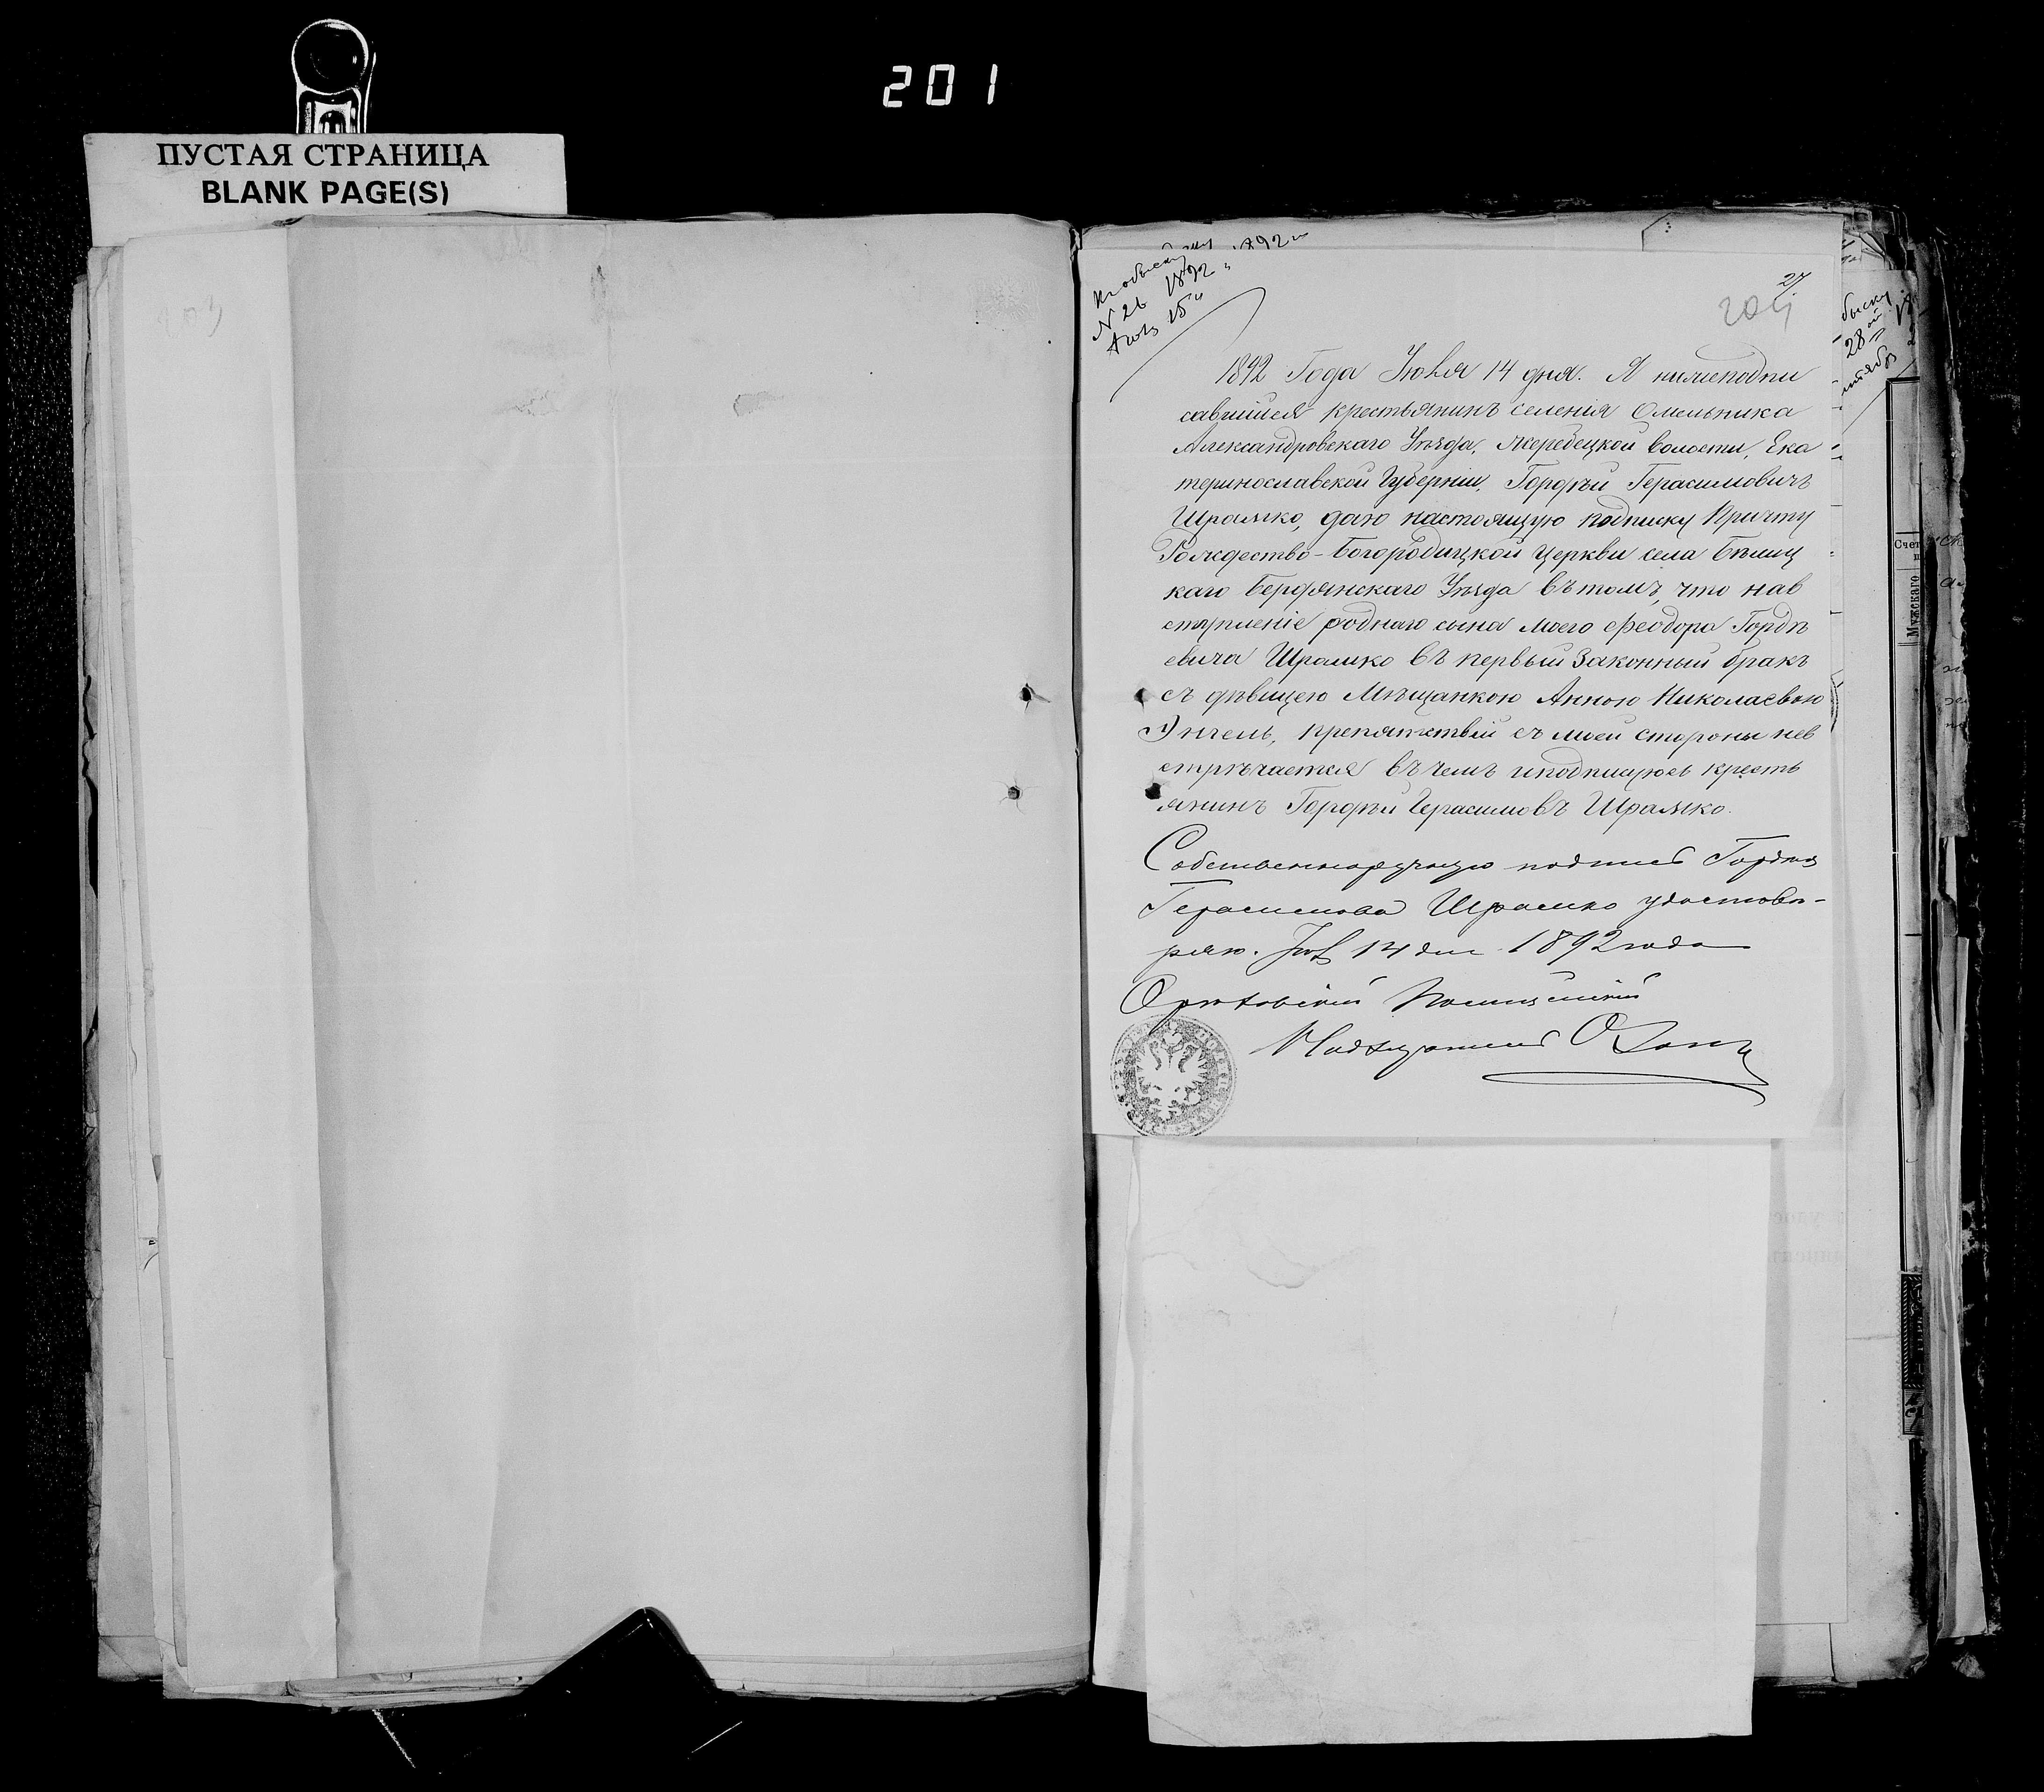 201
ПУСТАЯ СТРАНИЦА
BLANK PAGE(S)
Къ обыску
N 26 1892
15
27
204
1892 Года Іюля 14 дня. Я нижеподпи
савшийся крестьянинъ селенія Омельника
Александровскаго Уѣзда, Жеребецкой волости, Ека
теринославской Губерніи, Гордѣй Герасимовичъ
Шрамко, даю настоящую подписку Причту
Рождество-Богородицкой церкви села Бѣлиц
каго Бердянскаго Уѣзда въ томъ, что нав
ступленіе роднаго сына моего Феодора Гордѣ
евича Шрамко въ первый Законный бракъ
съ дѣвицею Мѣщанкою Анною Николаевою
Энгель, препятствій съ моей стороны нев
стрѣчается въ чемъ иподписуюсь кресть
янинъ Гордѣй Герасимовъ Шрамко.
Собственноручную подпись Гордѣя
Герасимова Шрамко удостовѣ-
ряю. 14 дня 1892 года
Орѣховскій Полицейскій
Надзиратель
быску
28
Счет
Мужскаго